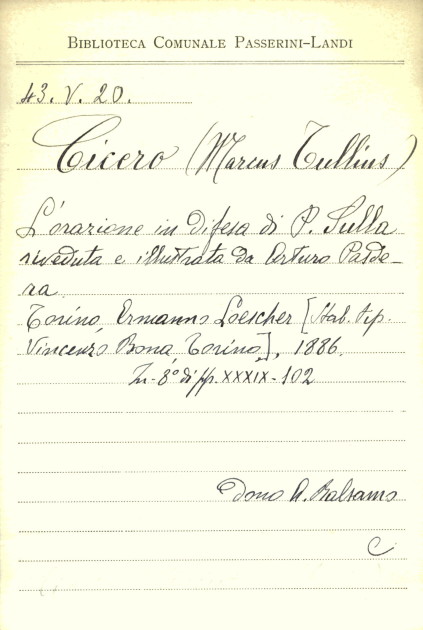 BIBLIOTECA COMUNALE PASSERINI-LANDI
43. V. 20.
Cicero (Marcus Tullius)
L'orazione in difesa di P. Sulla
riveduta e illustrata da Arturo Pasde-
ra
Torino, Ermanno Loescher [Stab. tip.
Vincenzo Bona, Torino], 1886.
In-8° di pp. XXXIX-102
Dono A. Balsamo
C